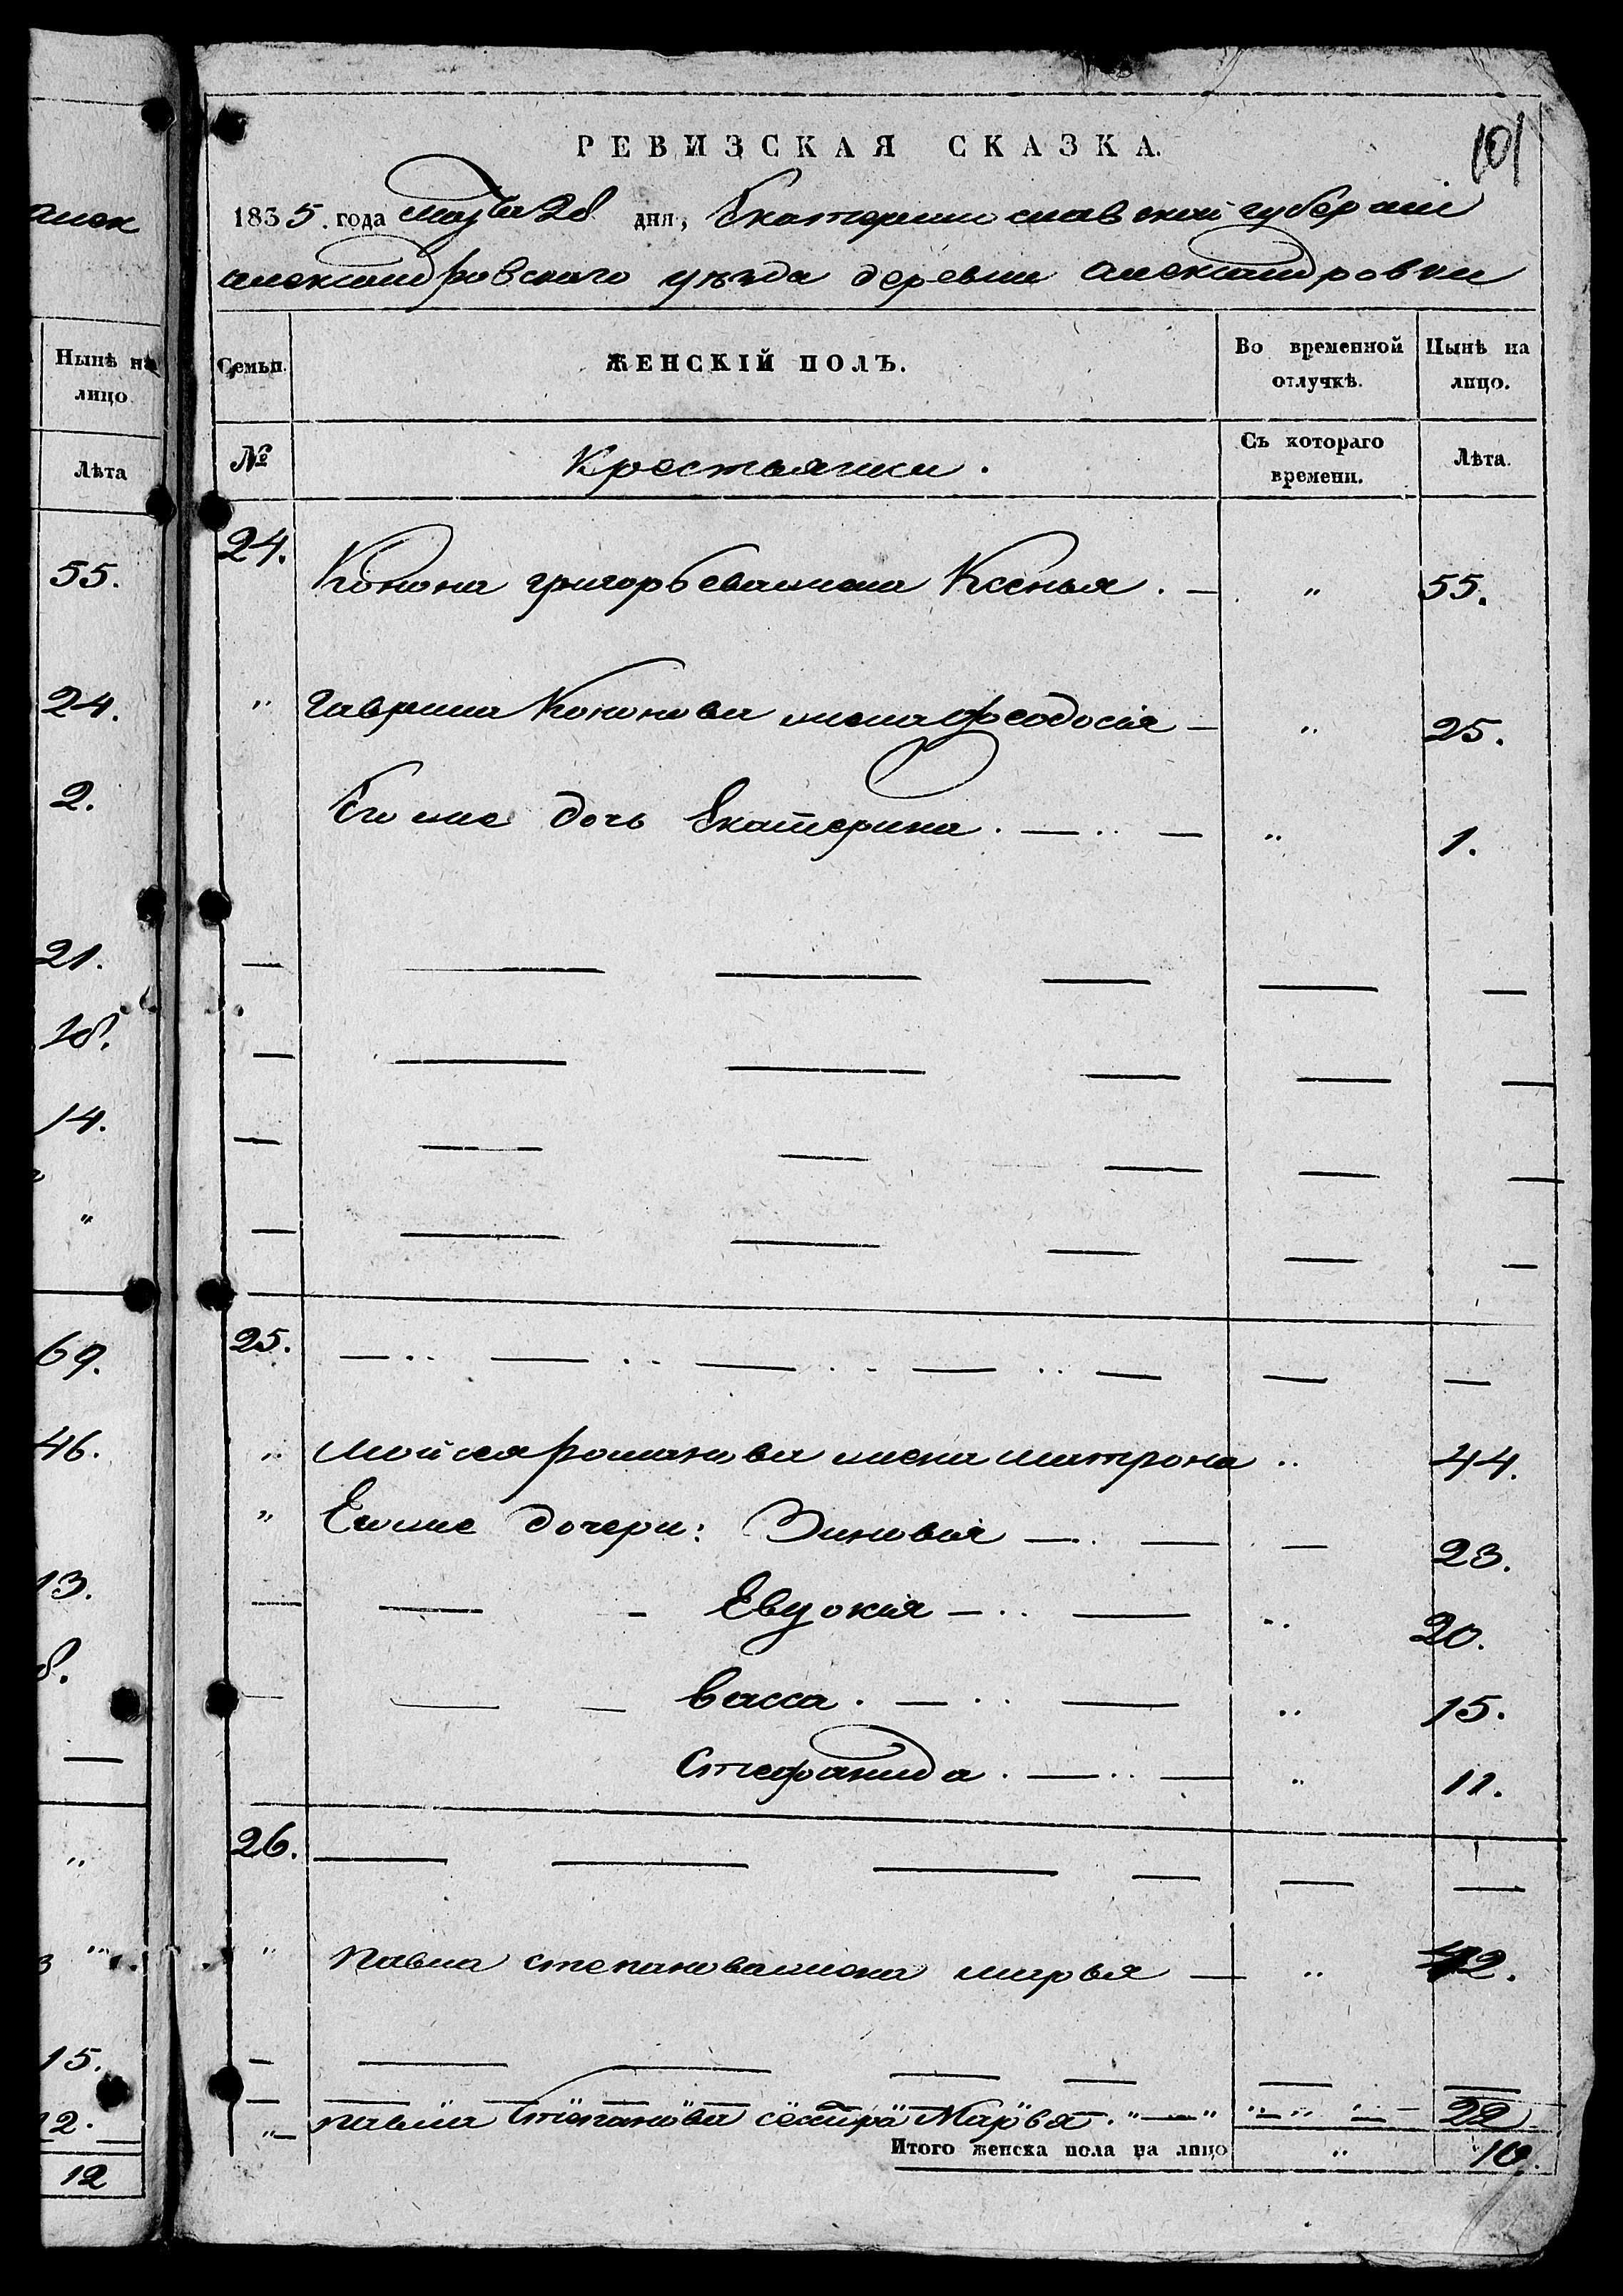 алек
Нынѣ на
лицо
Лѣта
55.
24.
2.
21.
18.
14.
"
69.
46.
13.
8.
"
"
15.
12.
12
101
РЕВИЗСКАЯ СКАЗКА.
1835. года дня, Екатеринославской губерніи
александровского уѣзда деревни александровки
Семьи. ЖЕНСКІЙ ПОЛЪ. Во временной отлучкѣ. Нынѣ на лицо.
№ Крестьянки. Съ котораго времени. Лѣта.
24. Конона григорьева жена Ксенья. — " 55.
" гаврила Кононова жена феодосія — " 25.
Его же дочь Екатерина. — .. — " 1.
25. — .. — .. — .. — .. — — —
" Мойсея романова жена матрона .. 44.
" Его же дочери: Зиновія — .. — — 23.
— — - Евдокія — .. — .. 20.
— — — васса. — .. — .. 15.
Стефанида. — .. — " 11.
26. — — — — — —
" павла степанова жена марья — " 42.
"— павла Степанова сестра Марья. "—" 22
Итого женска пола на лицо " 10.